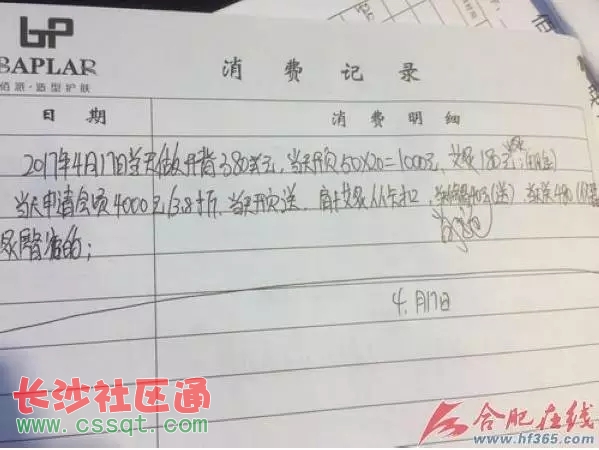 bp
BAPLAR
佰派·造型护肤
消费记录
日期 消费明细
2017年4月17日当天做开背380美元,当天开页50X20=1000元,艾灸180
当天申请会员4000元/3.8折,当天开页送,肩+艾灸从卡扣,(送)当天送480
灸臀
4月17日
长沙社区通
www.cssqt.com
合肥在线
www.hf365.com